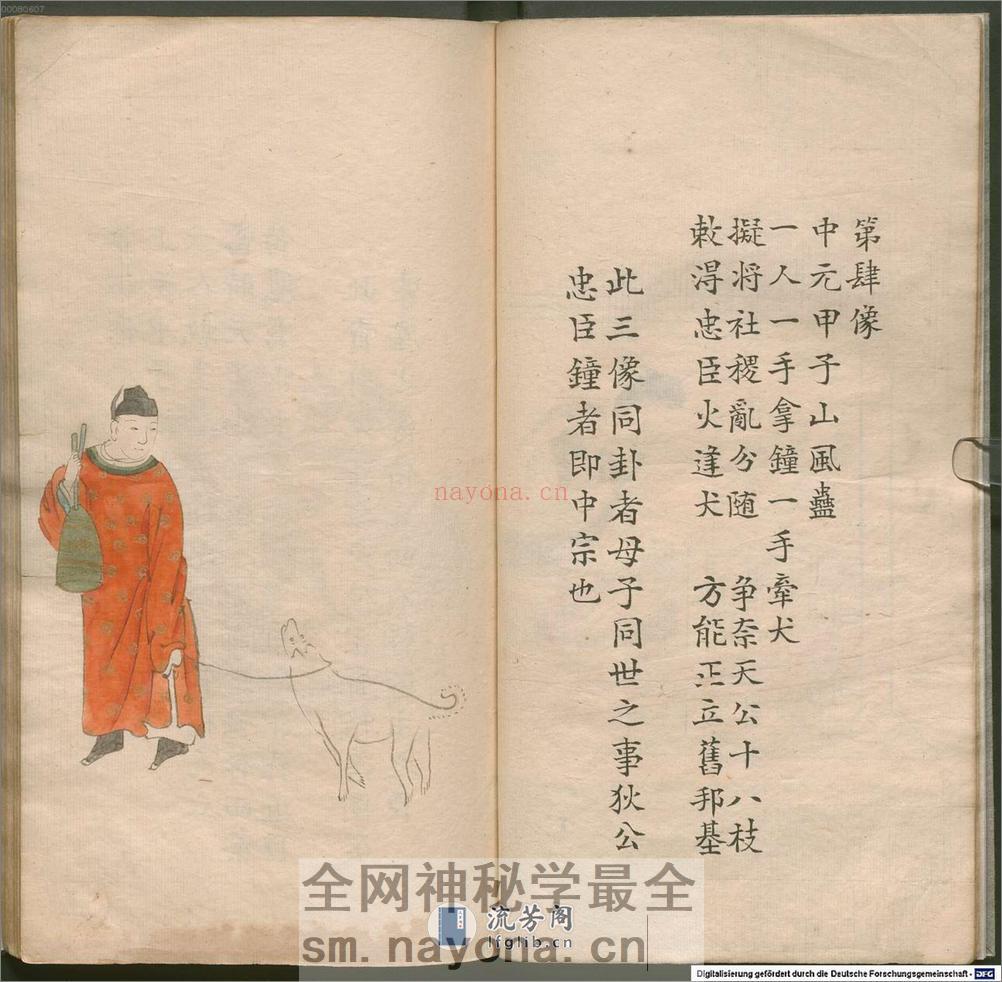 第肆像
中元甲子山風蠱
一人一手拿鐘一手牽犬
擬將社稷亂分随 争奈天公十八枝
敕淂忠臣火逢犬 方能正立舊邦基
此三像同卦者母子同世之事狄公
忠臣鐘者即中宗也
00080607
nayona.cn
全网神秘学最全
sm.nayona.cn
流芳阁
lfglib.cn
Digitalisierung gefördert durch die Deutsche Forschungsgemeinschaft - DFG